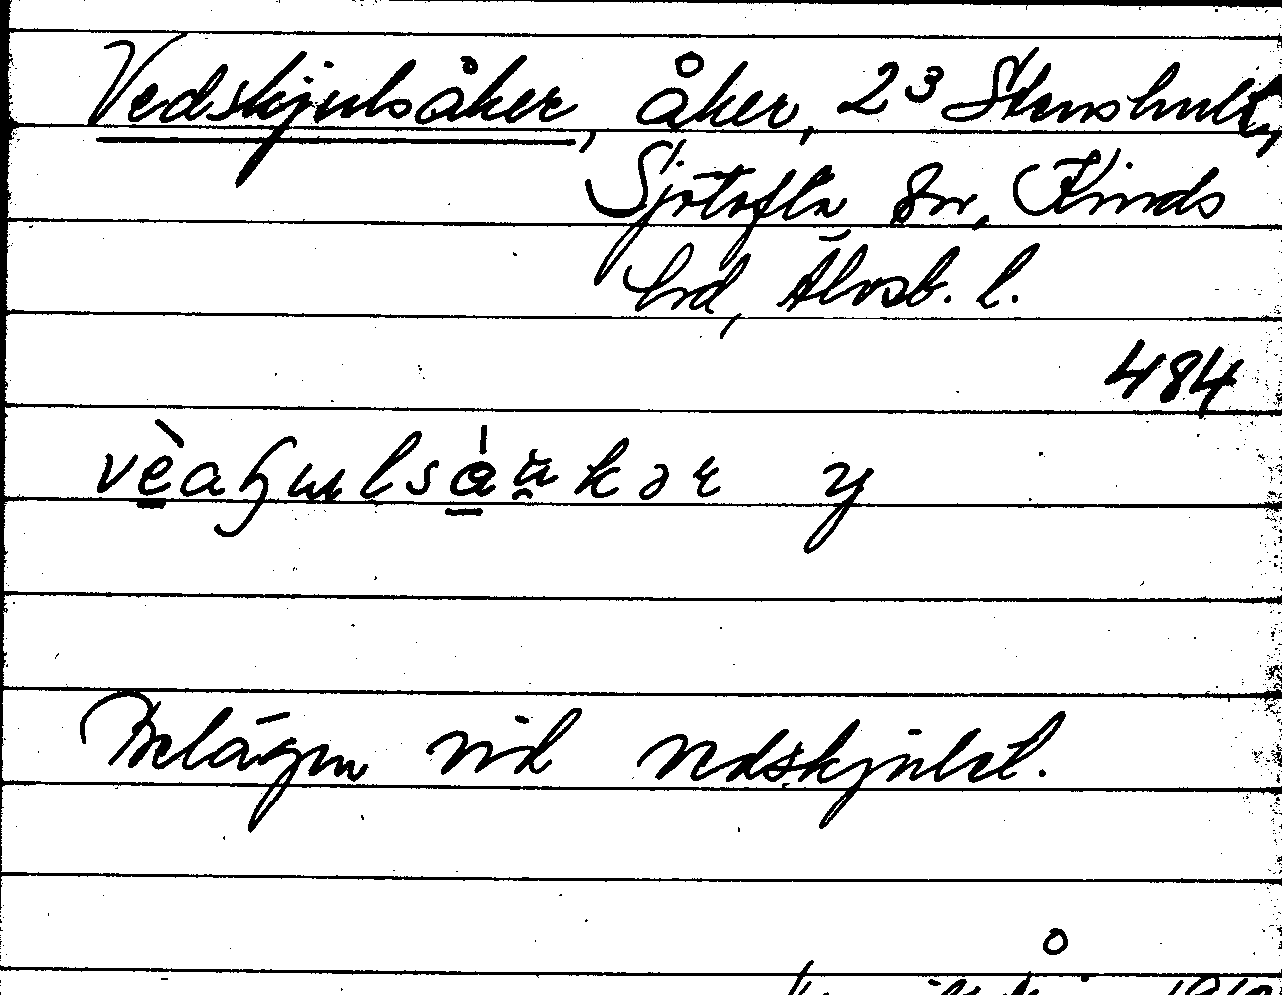 Vedskjulsåker, åker, 2³ Stenshult,
Sjötofta sn, Kinds
hd, Älvsb. l.
484
y
Belägen vid vedskjulet.